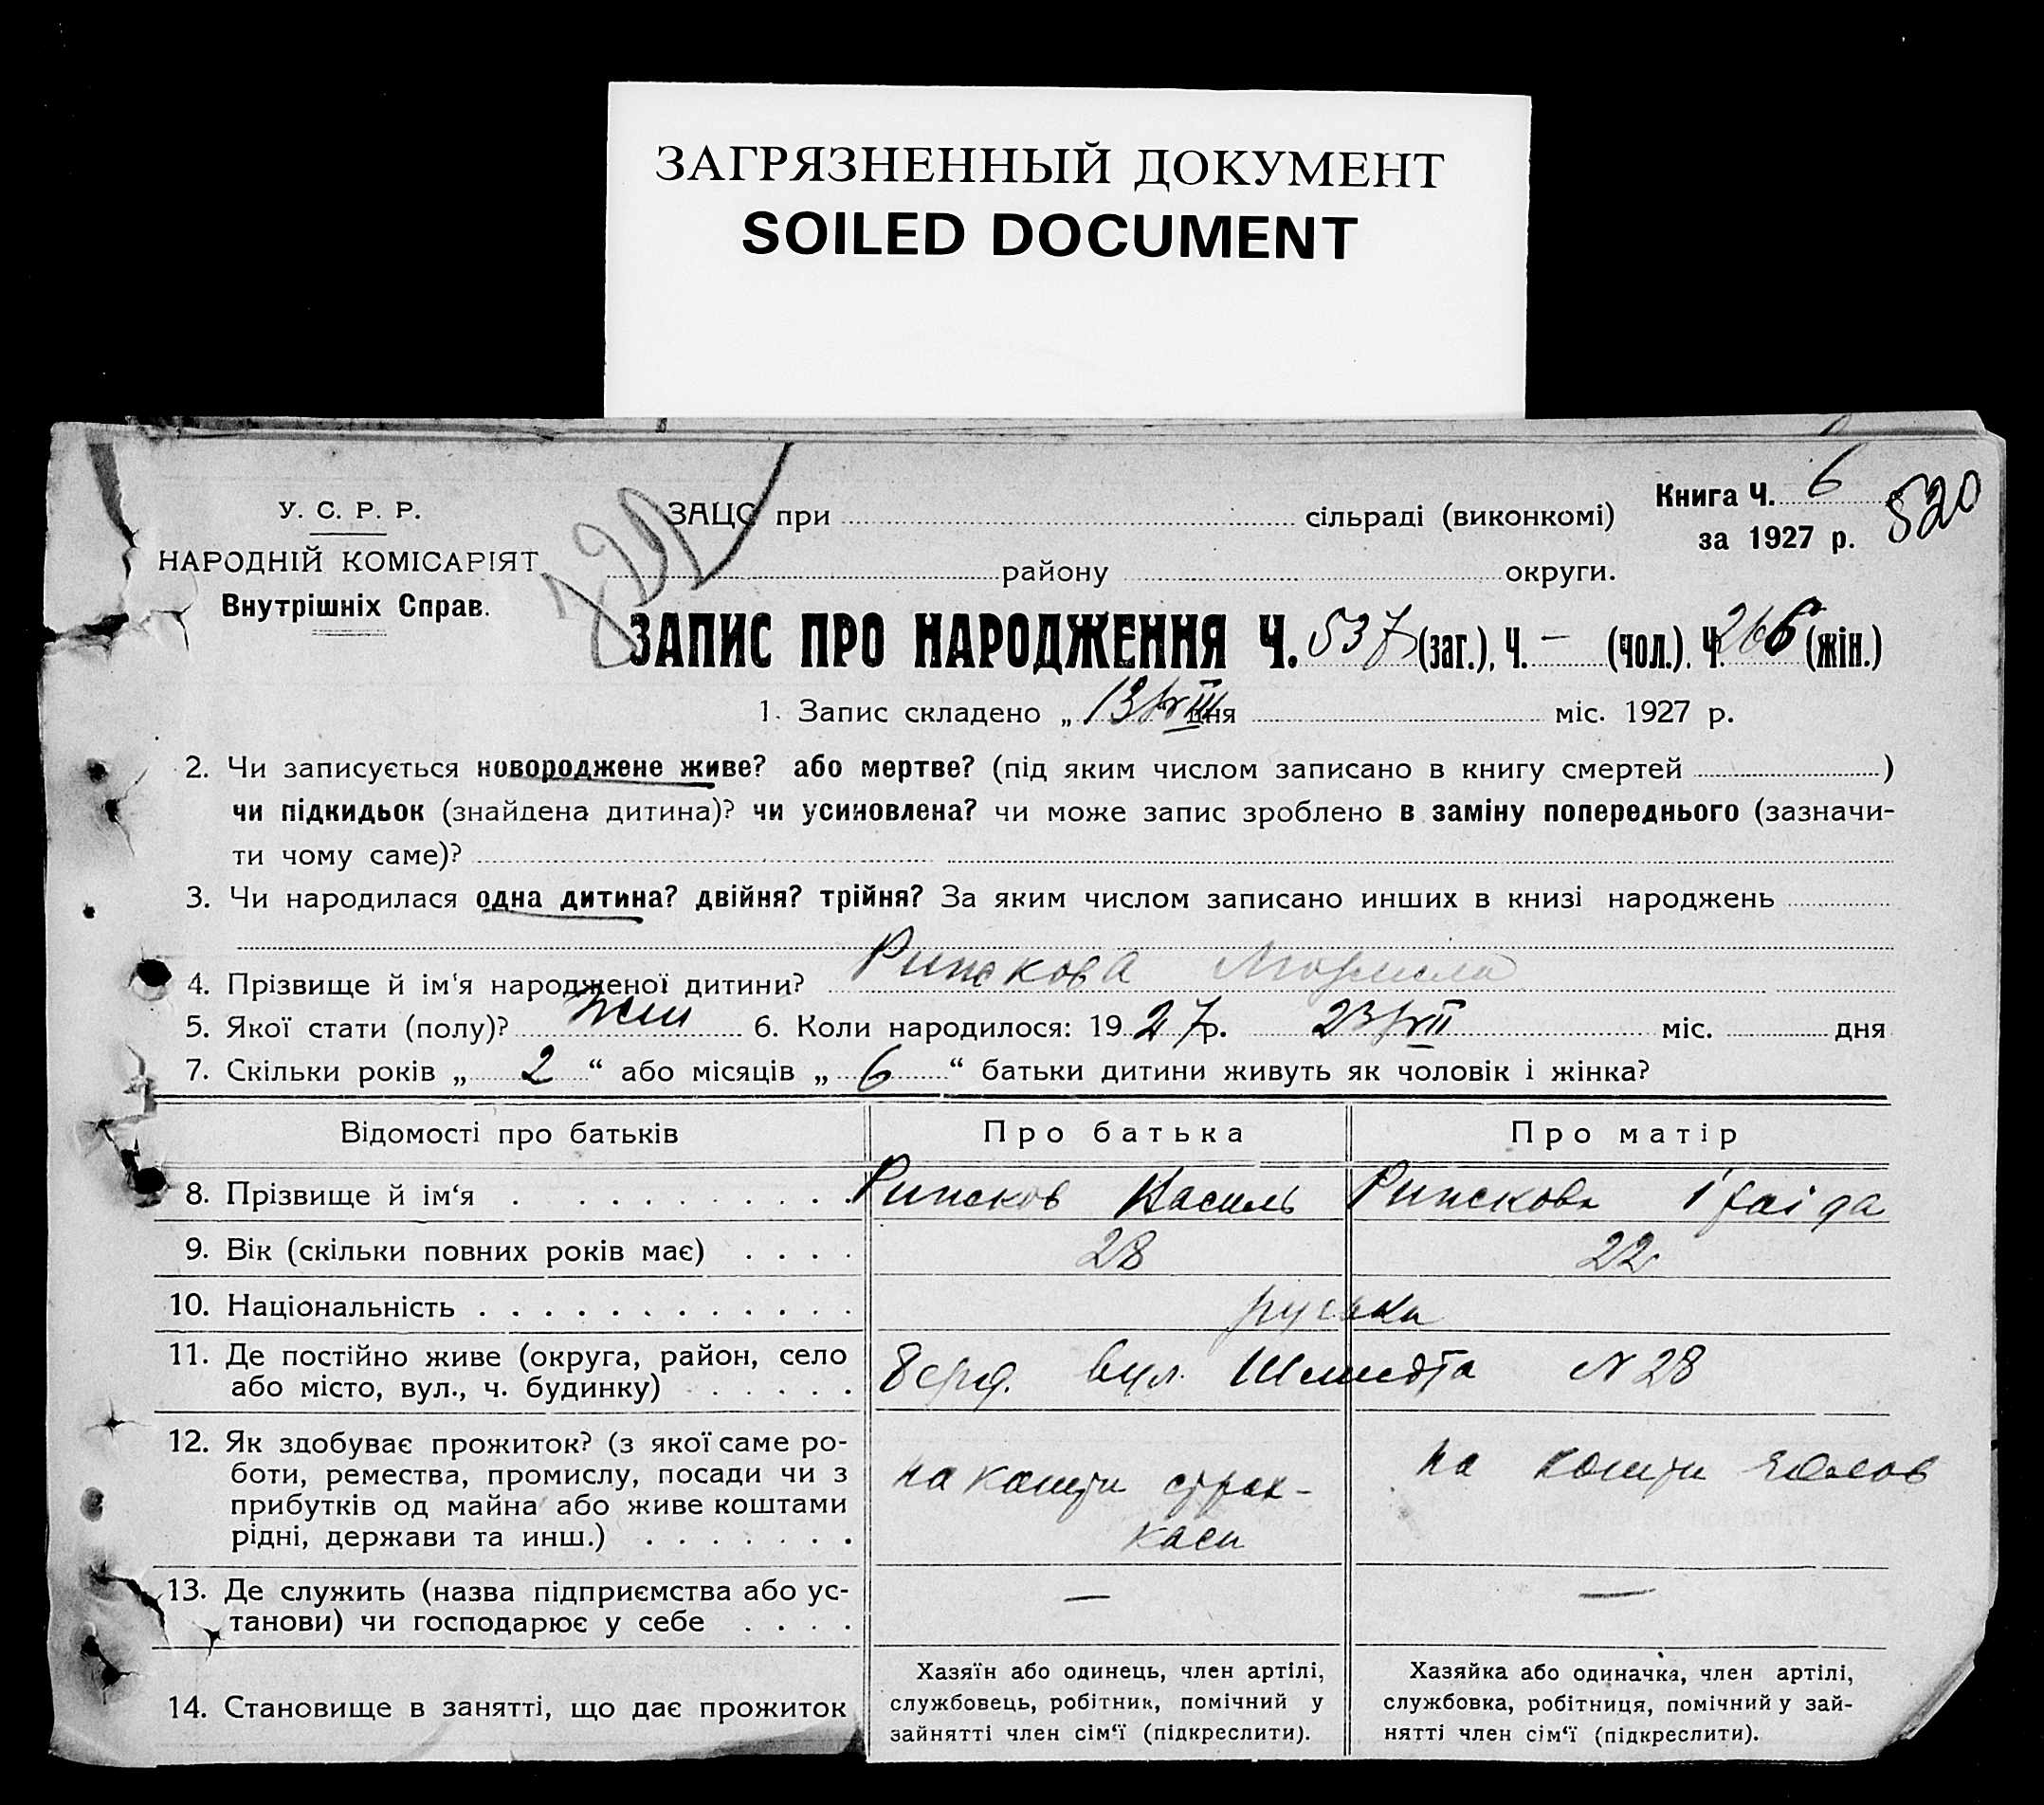 ЗАГРЯЗНЕННЫЙ ДОКУМЕНТ
SOILED DOCUMENT
У. С. Р. Р.
НАРОДНІЙ КОМІСАРІЯТ
Внутрішніх Справ.
ЗАЦС при сільраді (виконкомі)
району округи.
Книга Ч. 6
за 1927 р.
520
ЗАПИС ПРО НАРОДЖЕННЯ Ч. 537 (заг.), Ч. — (чол.). Ч. 266 (жін.)
1. Запис складено „ 13/VIII дня міс. 1927 р.
2. Чи записується новороджене живе? або мертве? (під яким числом записано в книгу смертей )
чи підкидьок (знайдена дитина)? чи усиновлена? чи може запис зроблено в заміну попереднього (зазначи-
ти чому саме)?
3. Чи народилася одна дитина? двійня? трійня? За яким числом записано инших в книзі народжень
4. Прізвище й ім‘я народженої дитини?
5. Якої стати (полу)? жін 6. Коли народилося: 1927р. 23/VII міс. дня
7. Скільки років „ 2 “ або місяців „ 6 “ батьки дитини живуть як чоловік і жінка?
Відомості про батьків Про батька Про матір
8. Прізвище й ім‘я . . . . . . . . . . Василь
9. Вік (скільки повних років має) . . . . 28 22
10. Національність . . . . . . . . . . . . . руська
11. Де постійно живе (округа, район, село
або місто, вул., ч. будинку) . . . . . вул. Шмидта N 28
12. Як здобуває прожиток? (з якої саме ро-
боти, ремества, промислу, посади чи з
прибутків од майна або живе коштами
рідні, держави та инш.) . . . . . . .
на кошти страх-
каси
на кошти
13. Де служить (назва підприємства або ус-
танови) чи господарює у себе . . . . — —
14. Становище в занятті, що дає прожиток
Хазяїн або одинець, член артілі,
службовець, робітник, помічний у
зайнятті член сім‘ї (підкреслити).
Хазяйка або одиначка, член артілі,
службовка, робітниця, помічний у зай-
нятті член сім‘ї (підкреслити).